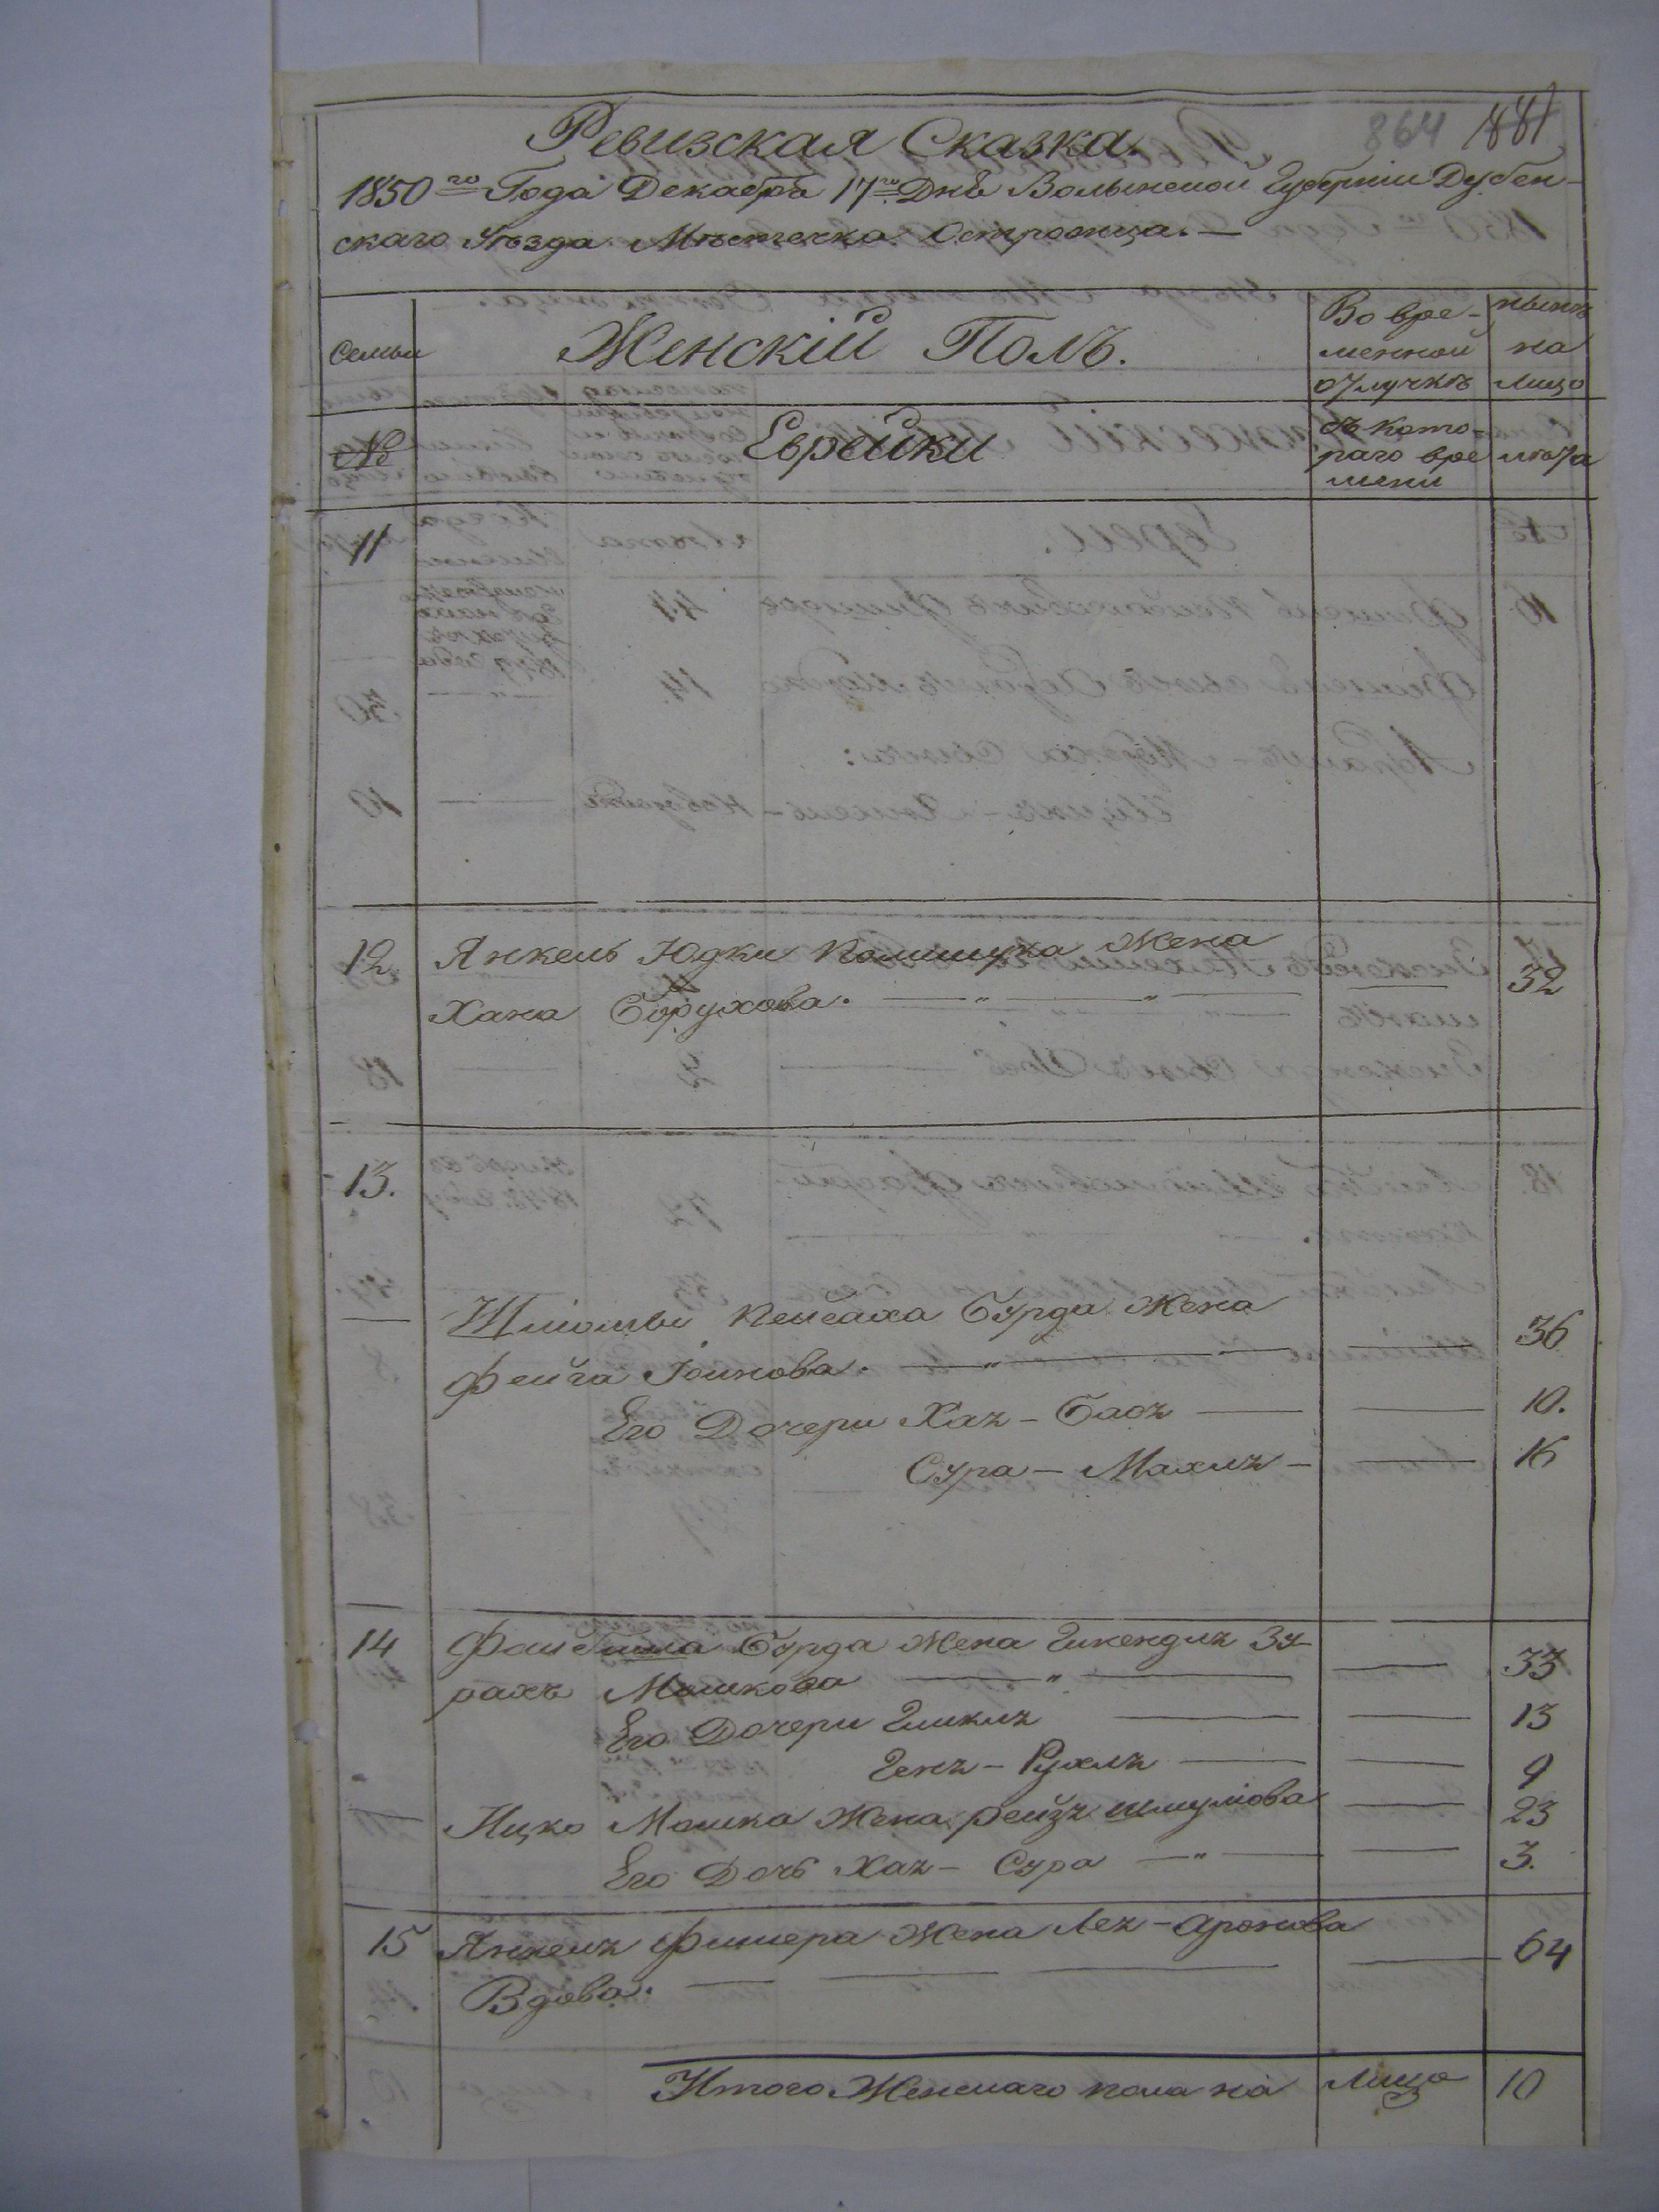 864 881
Ревизская Сказка.
1850го Года Декабря 17го Дня Волынской Губерніи Дубен-
скаго Уѣзда Мѣстечка Острожца. —
Семьи
Женскій Полъ.
Во вре-
менной
отлучкѣ
нынѣ
на
лицо
№
Еврейки
Съ кото-
раго вре
мени
лѣта
11
12 Янкель Юдки Полищука Жена
Хана Борухова. 32
13.
Шліомы Пейсаха Бурда Жена
Фейга Іойнова. 36
Его Дочери Хая - Бася 10.
Сура - Махля 16
14 Бурда Жена Зу-
рахъ Мошкова 33
Его Дочери 13
Геня - Рухля 9
Ицко Мошка Жена Рейзя Шмулiова 23
Его Дочь Хая - Сура 3.
15 Янкеля Фишера Жена Лея - Аронова 64
Вдова.
Итого Женскаго пола на Лицо 10